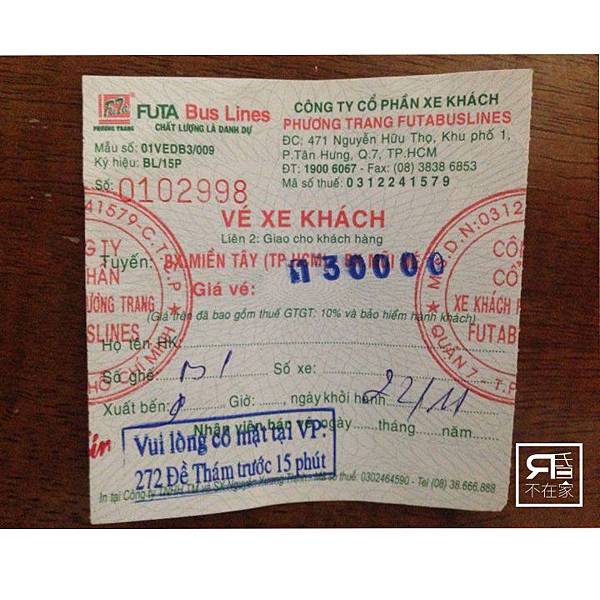 FUTA Bus Lines
PHƯƠNG TRANG CHẤT LƯỢNG LÀ DANH DỰ
CÔNG TY CỔ PHẦN XE KHÁCH
PHƯƠNG TRANG FUTABUSLINES
ĐC: 471 Nguyễn Hữu Thọ, Khu phố 1,
P.Tân Hưng, Q.7, TP.HCM
ĐT: 1900 6067 - Fax: (08) 3838 6853
Mã số thuế: 0312241579
Mẫu số: 01VEDB3/009
Ký hiệu: BL/15P
Số: 0102998
VÉ XE KHÁCH
Liên 2: Giao cho khách hàng
Tuyến: BX MIỀN TÂY (TP.HCM)
130000
Giá vé:
(Giá trên đã bao gồm thuế GTGT: 10% và bảo hiểm hành khách)
Họ tên HK:
Số ghế: B1 Số xe:
Xuất bến: 8 Giờ: , ngày khởi hành 22/11
Nhân viên bán vé ngày tháng năm
Vui lòng có mặt tại VP:
272 Đề Thám trước 15 phút
In tại Công ty TNHH TM và SX Nguyễn Xương Thịnh - Mã số thuế: 0302464590 - Tel (08) 38.666.888
CÔN
XE KHÁCH
FUTAB
QUẬN 7 - T.P
ƯƠNG TRANG
SLINES
HỒ CHÍ MINH
不在家